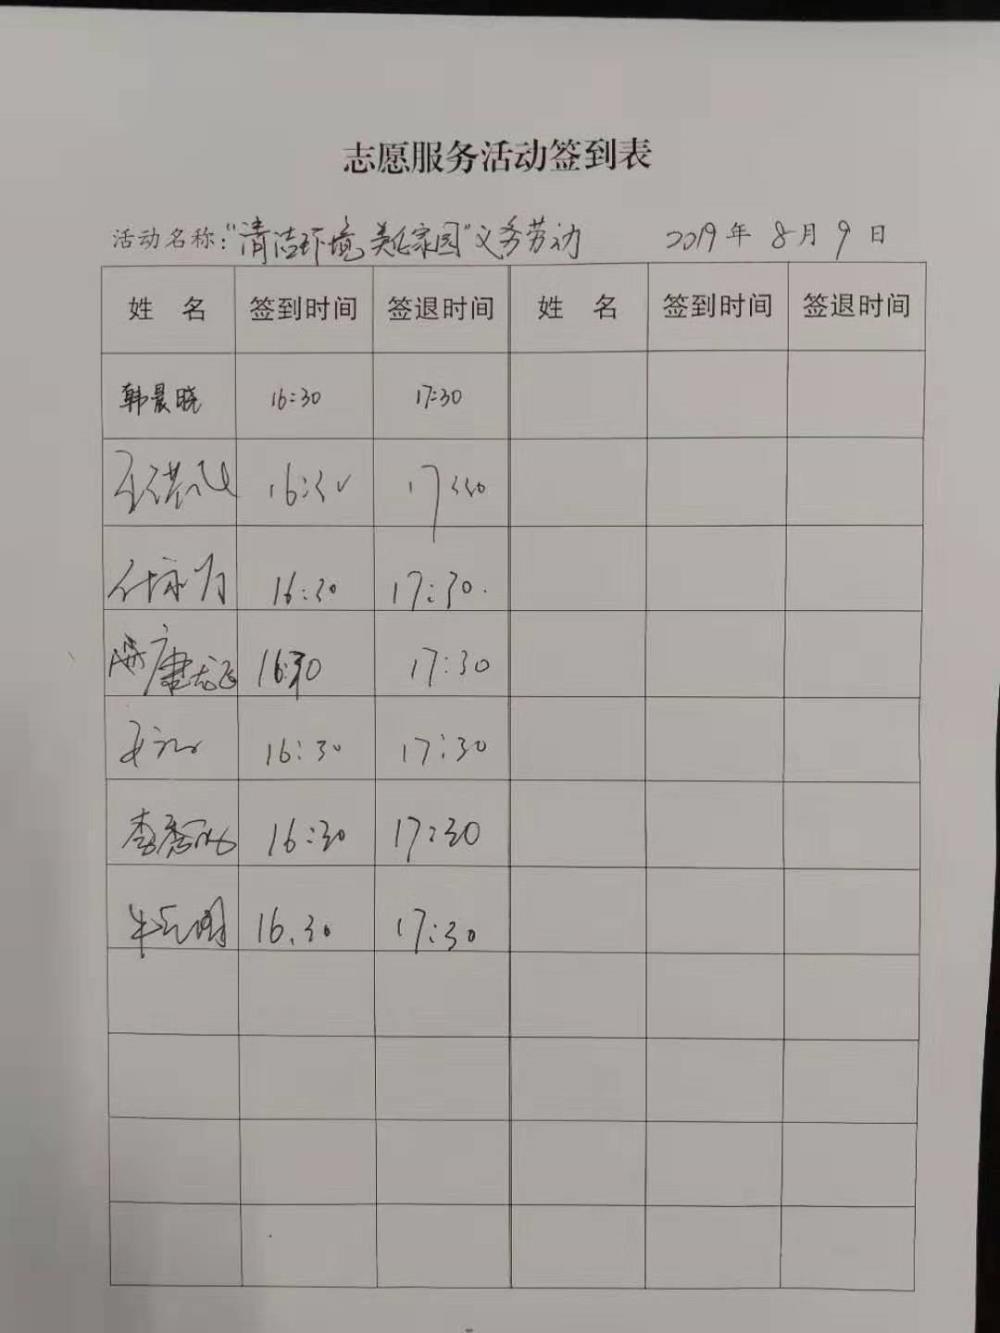 志愿服务活动签到表
活动名称：“清洁环境 美化家园”义务劳动 2019年 8月 9日
姓 名 签到时间 签退时间 姓 名 签到时间 签退时间
韩晨晓 16:30 17:30
16:30 17:30
16:30 17:30.
康龙飞 16:30 17:30
16:30 17:30
李秀 16:30 17:30
牛 16.30 17:30